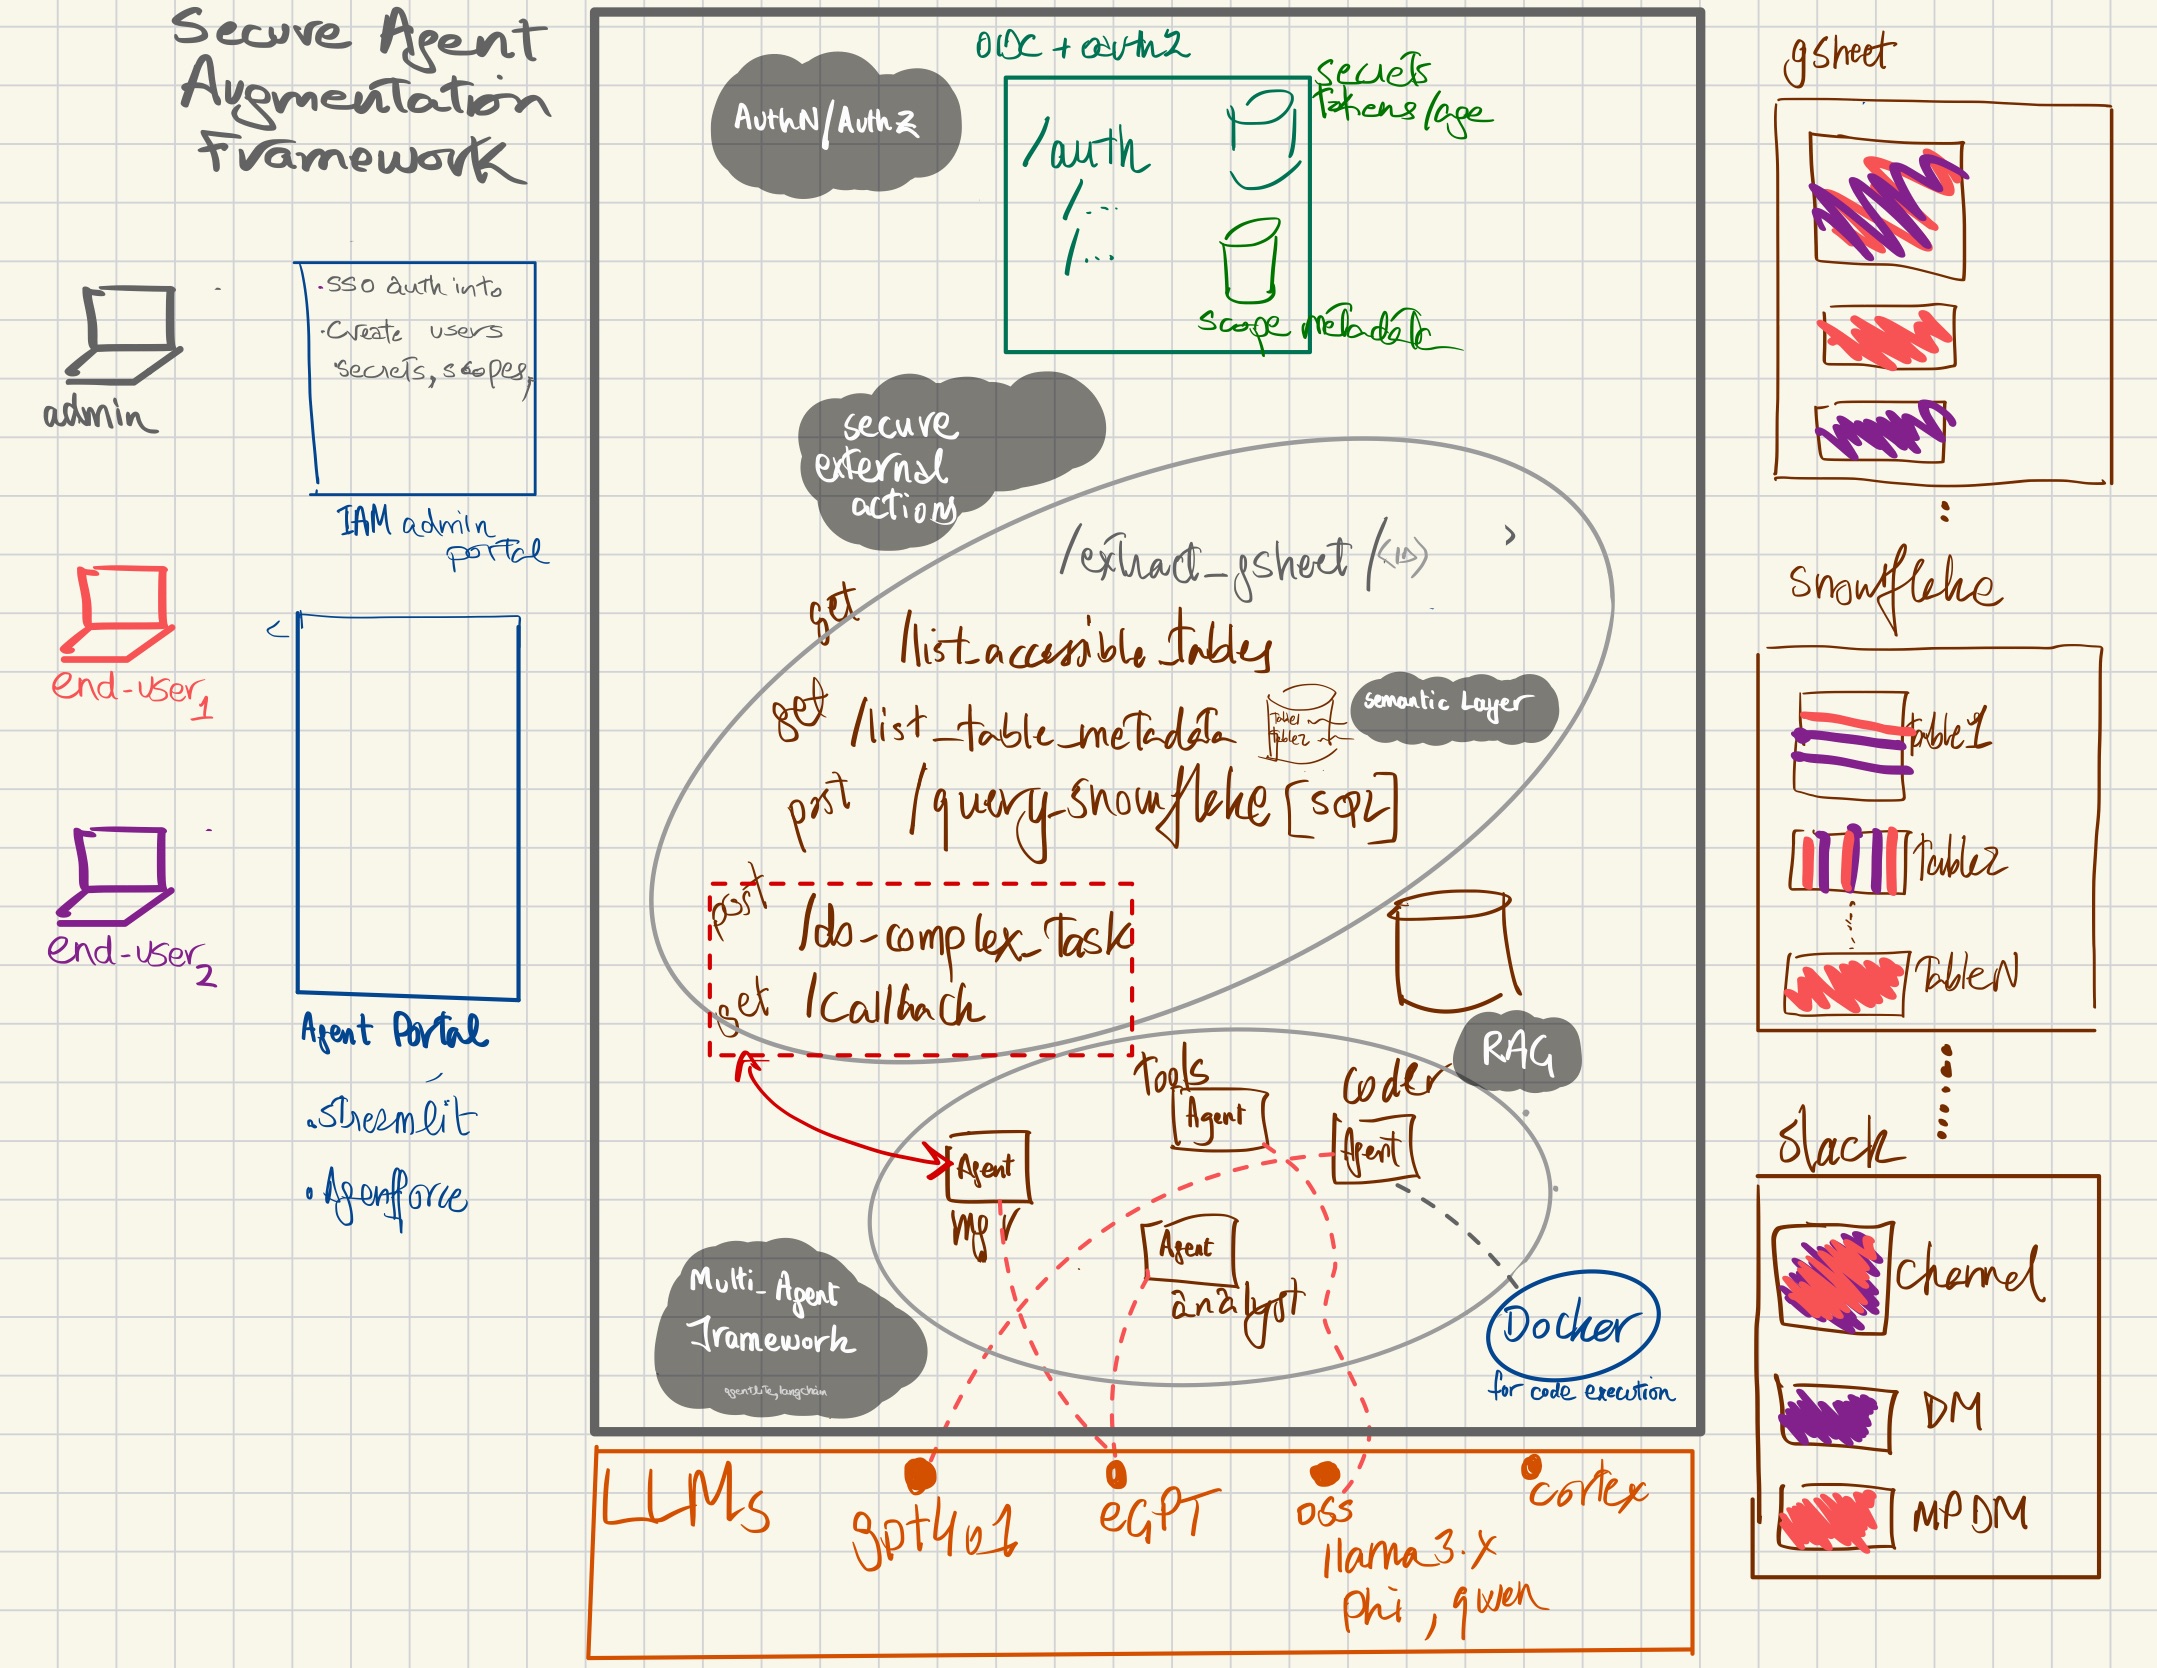 Secure Agent
Augmentation
Framework
admin
.SSO auth into
.Create users
secrets, scopes,
IAM admin
portal
end-user1
end-user2
Agent Portal
.Streamlit
.Agentforce
AuthN/AuthZ
OIDC + oauth2
/auth
/...
/...
secrets
tokens/age
scope metadata
secure
external
actions
/extract_gsheet/<ID>
get
/list_accessible_tables
get
/list_table_metadata
Table1
Table2
semantic Layer
post
/query_snowflake [SQL]
post
/do-complex_Task
get
/callback
RAG
tools
Agent
coder
Agent
Agent
mgr
Agent
analyst
Multi_Agent
Framework
agentlite, langchain
Docker
for code execution
LLMs
gpt4o1
eGPT
OSS
llama3.x
phi, qwen
cortex
gsheet
snowflake
Table1
Table2
TableN
Slack
Channel
DM
MPDM